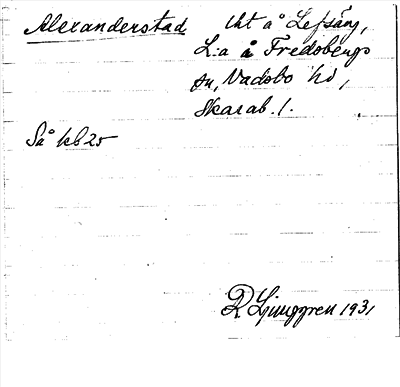 Alexanderstad
tht å Lefsäng,
L:a å Fredsbergs
sn, Vadsbo hd,
Skarab. l.
Så kb 25
R Ljunggren 1931